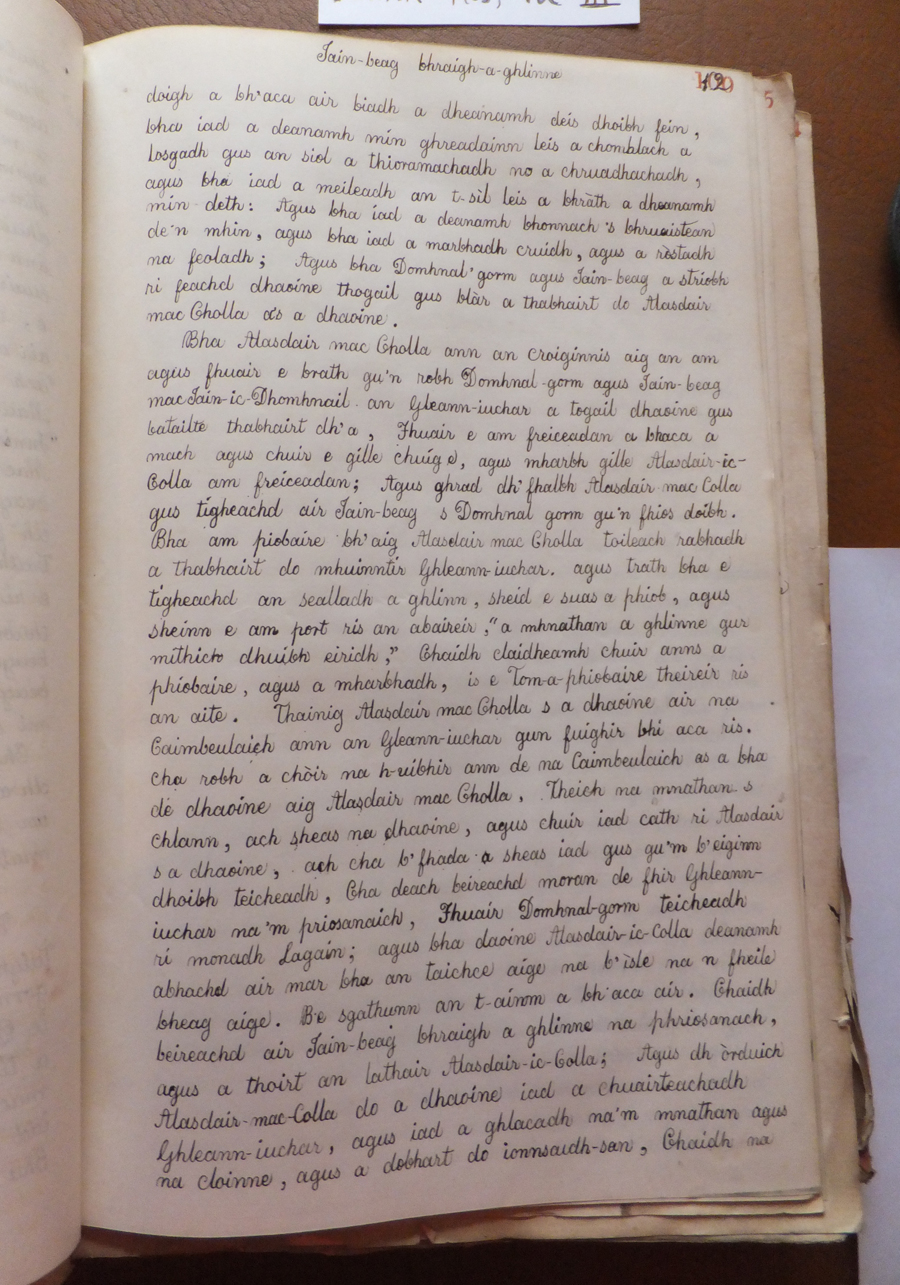 Iain-beag bhraigh-a-ghlinne
5
doigh a bh'aca air biadh a dheanamh deis dhoibh fein,
bha iad a deanamh min ghreadainn leis a chomblach a
losgadh gus an siol a thioramachadh no a chruadhachadh,
agus bha iad a meileadh an t-sil leis a bhràth a dheanamh
min-deth: Agus bha iad a deanamh bhonnach 's bhruaistean
de'n mhin, agus bha iad a marbhadh cruidh, agus a ròstadh
na feoladh; Agus bha Domhnal'gorm agus Iain-beag a striobh
ri feachd dhaoine thogail gus blàr a thabhairt do Alasdair
mac Cholla 's a dhaoine.
Bha Alasdair mac Cholla ann an Croiginnis aig an am
agus fhuair e brath gu'n robh Domhnal-gorm agus Iain-beag
mac Iain-ic-Dhomhnail an Gleann-iuchar a togail dhaoine gus
batailte thabhairt dh'a, Fhuair e am freiceadan a bhaca a
mach agus chuir e gille chuig e, agus mharbh gille Alasdair-ic-
Colla am freiceadan; Agus ghrad dh'fhalbh Alasdair mac Colla
gus tigheachd air Iain-beag s Domhnal gorm gu'n fhios doibh.
Bha am piobaire bh'aig Alasdair mac Cholla toileach rabhadh
a thabhairt do mhuinntir Ghleann-iuchar. agus trath bha e
tigheachd an sealladh a ghlinn, sheid e suas a phiob, agus
sheinn e am port ris an abaireir, "a mhnathan a ghlinne gur
mithich dhuibh eiridh," Chaidh claidheamh chuir anns a
phiobaire, agus a mharbhadh, is e Tom-a-phiobaire theireir ris
an aite. Thainig Alasdair mac Cholla s a dhaoine air na
Caimbeulaich ann an Gleann-iuchar gun fuighir bhi aca ris.
cha robh a chòir na h-uibhir ann de na Caimbeulaich as a bha
de dhaoine aig Alasdair mac Cholla. Theich na mnathan s
chlann, ach sheas na dhaoine, agus chuir iad cath ri Alasdair
s a dhaoine, ach cha b'fhada a sheas iad gus gu'm b'eiginn
dhoibh teicheadh, Cha deach beireachd moran de fhir Ghleann-
iuchar na'm priosanaich, Fhuair Domhnal-gorm teicheadh
ri monadh Lagain; agus bha daoine Alasdair-ic-Colla deanamh
abhachd air mar bha an taichce aige na b'isle na n fheile
bheag aige. B-e sgathunn an t-ainm a bh'aca air. Chaidh
beireachd air Iain-beag bhraigh a ghlinne na phriosanach,
agus a thoirt an lathair Alasdair-ic-Colla; Agus dh òrduich
Alasdair-mac-Colla do a dhaoine iad a chuairteachadh
Ghleann-iuchar, agus iad a ghlacadh na'm mnathan agus
na cloinne, agus a dobhart do ionnsaidh-san, Chaidh na